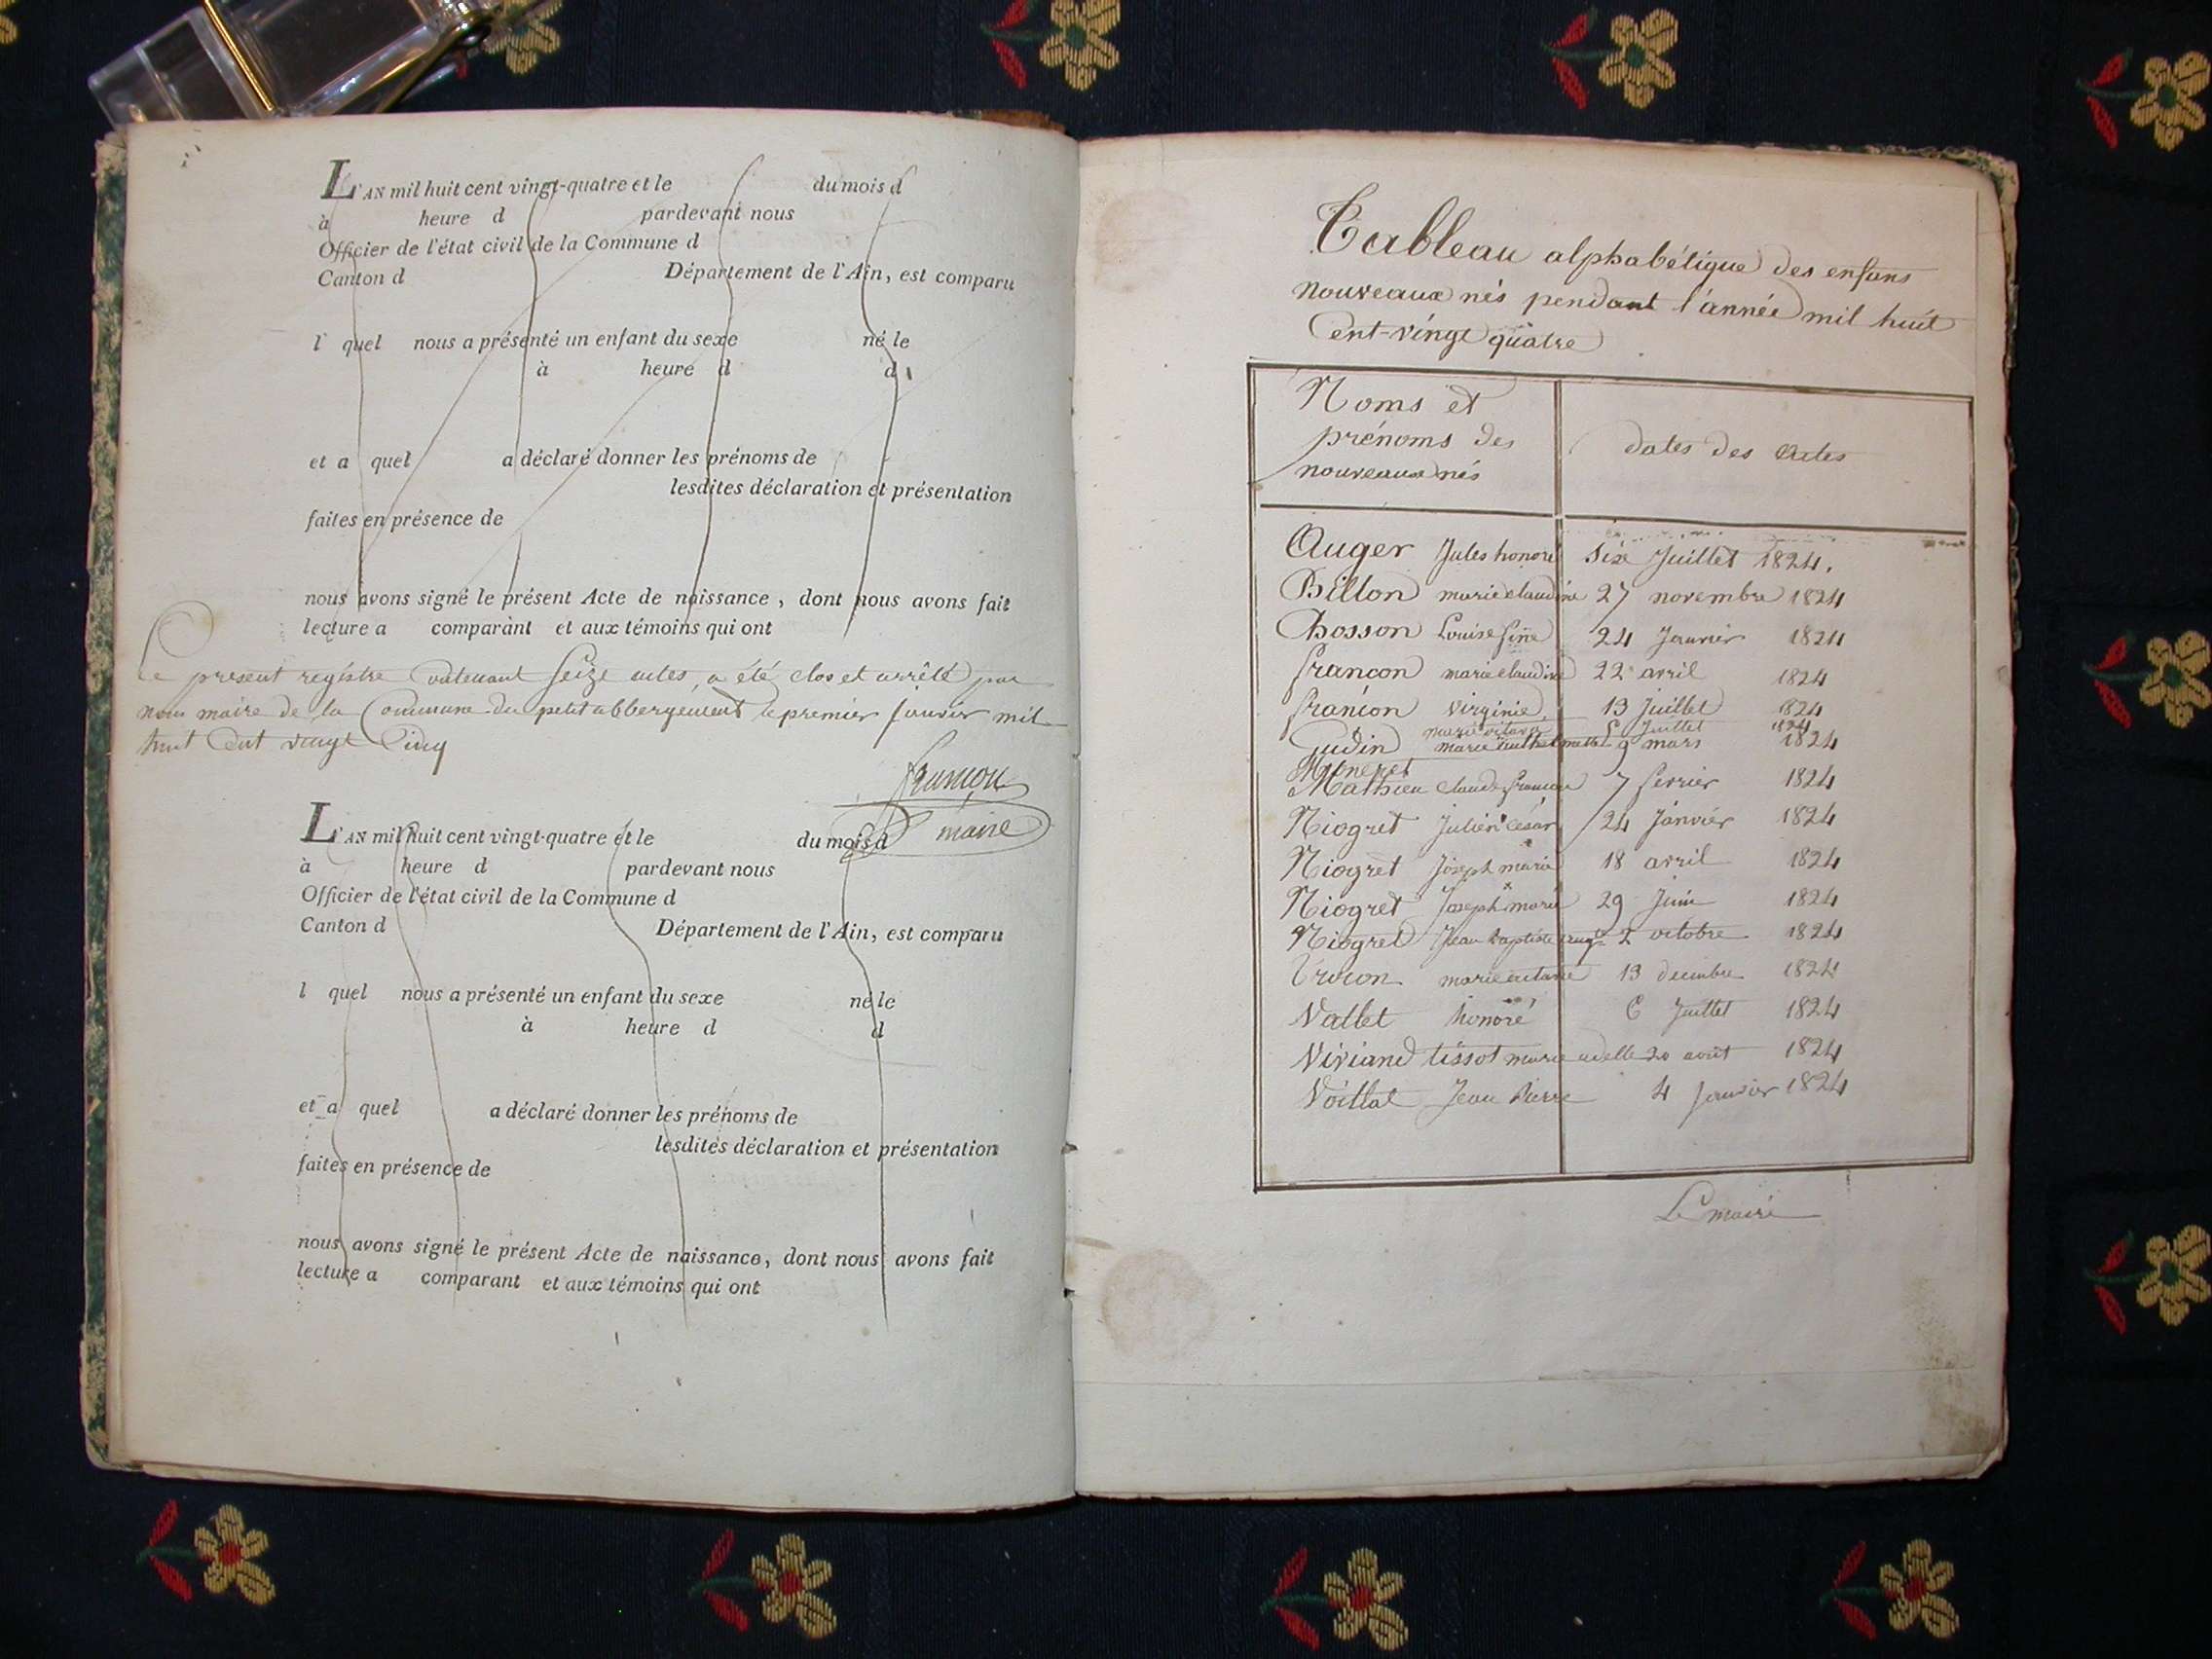 L'AN mil huit cent vingt-quatre et le du mois d
à heure d pardevant nous
Officier de l'état civil de la Commune d
Canton d Département de l'Ain, est comparu
l quel nous a présenté un enfant du sexe né le
à heure d d
et a quel a déclaré donner les prénoms de
lesdites déclaration et présentation
faites en présence de
nous avons signé le présent Acte de naissance, dont nous avons fait
lecture a comparant et aux témoins qui ont
Le present registre contenant seize actes, a été clos et arrêté par
nous maire de la Commune du petit abbergement le premier janvier mil
huit Cent vingt Cinq
françon
maire
L'AN mil huit cent vingt-quatre et le du mois d
à heure d pardevant nous
Officier de l'état civil de la Commune d
Canton d Département de l'Ain, est comparu
l quel nous a présenté un enfant du sexe né le
à heure d d
et a quel a déclaré donner les prénoms de
lesdites déclaration et présentation
faites en présence de
nous avons signé le présent Acte de naissance, dont nous avons fait
lecture a comparant et aux témoins qui ont
Tableau alphabétique des enfans
nouveaux nés pendant l'année mil huit
Cent-vingt quatre
Noms et
prénoms des
nouveaux nés
dates des Actes
Auger Jules honoré Six Juillet 1824.
Billon marie claudine 27 novembre 1824
Chosson Louise 24 Janvier 1824
françon marie claudine 22 avril 1824
françon virginie 13 Juillet 1824
Juillet 1824
Gudin marie 9 mars 1824
Moneret
Mathieu claude françois 7 fevrier 1824
Niogret Julien César 24 Janvier 1824
Niogret Joseph marie 18 avril 1824
Niogret Joseph marie 29 Juin 1824
Niogret Jean baptiste 2 octobre 1824
marie 13 decembre 1824
Vallet honoré 6 Juillet 1824
Viviand tissot marie adelle 20 août 1824
Voillat Jean Pierre 4 Janvier 1824
Le maire